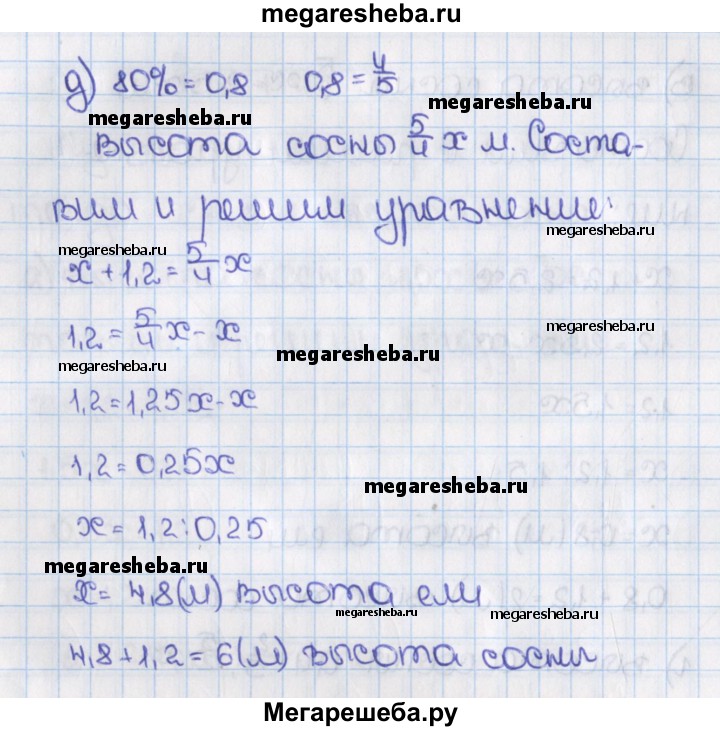 megaresheba.ru
д) 80% = 0,8 0,8 = 4/5
megaresheba.ru
megaresheba.ru
Высота сосны 5/4 x м. Соста-
вим и решим уравнение:
megaresheba.ru
x + 1,2 = 5/4 x
1,2 = 5/4 x - x
megaresheba.ru
megaresheba.ru
megaresheba.ru
1,2 = 1,25x - x
1,2 = 0,25x
megaresheba.ru
x = 1,2 : 0,25
megaresheba.ru
x = 4,8 (м) высота ели
megaresheba.ru
megaresheba.ru
4,8 + 1,2 = 6 (м) высота сосны
Мегарешеба.ру